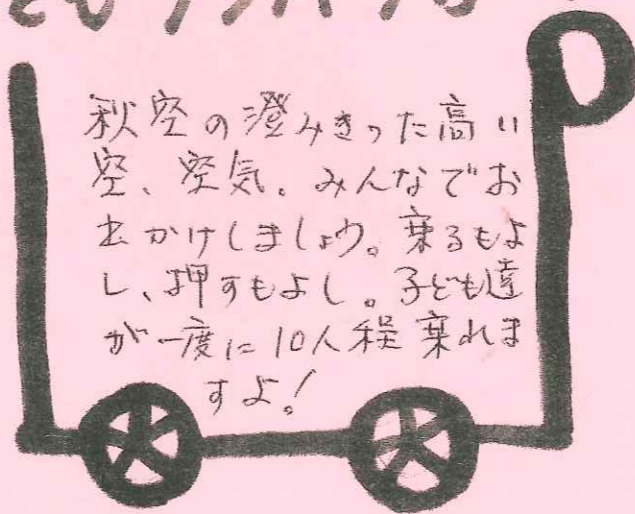 秋空の澄みきった高い
空、空気。みんなでお
出かけしましょう。乗るもよ
し、押すもよし。子ども達
が一度に10人程乗れま
すよ!